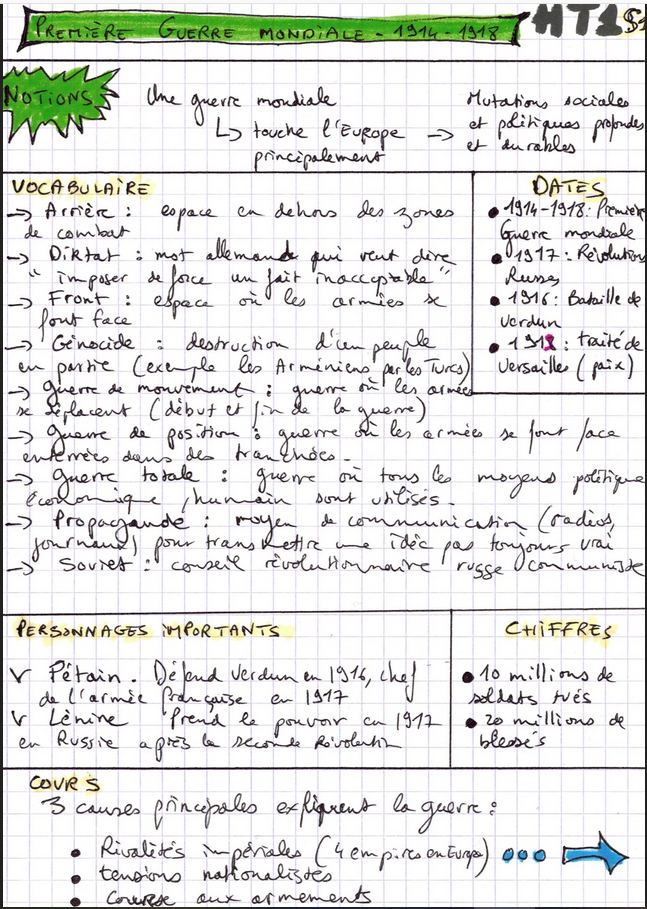 PREMIÈRE GUERRE MONDIALE - 1914-1918
HT1
NOTIONS
Une guerre mondiale
↳ touche l'Europe
principalement
→ Mutations sociales
et politiques profondes
et durables
VOCABULAIRE
→ Arrière : espace en dehors des zones
de combat
→ Diktat : mot allemand qui veut dire
" imposer de force un fait inacceptable "
→ Front : espace où les armées se
font face
→ Génocide : destruction d'un peuple
en partie (exemple les Arméniens par les Turcs)
→ guerre de mouvement : guerre où les armées
se déplacent (début et fin de la guerre)
→ guerre de position : guerre où les armées se font face
enterrées dans des tranchées.
→ guerre totale : guerre où tous les moyens politique
économique /humain sont utilisés.
→ Propagande : moyen de communication (radios,
journaux) pour transmettre une idée pas toujours vrai
→ Soviet : conseil révolutionnaire russe communiste
DATES
• 1914-1918 : Première
Guerre mondiale
• 1917 : Révolutions
Russes
• 1916 : Bataille de
Verdun
• : traité de
Versailles (paix)
PERSONNAGES IMPORTANTS
v Pétain . Défend Verdun en 1916, chef
de l'armée française en 1917
v Lénine Prend le pouvoir en 1917
en Russie après la seconde Révolution
CHIFFRES
• 10 millions de
soldats tués
• 20 millions de
blessés
COURS
3 causes principales expliquent la guerre :
• Rivalités impériales (4 empires en Europe)
• tensions nationalistes
• Course aux armements